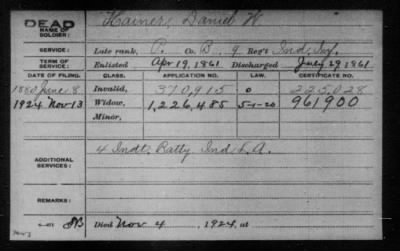 DEAD
NAME OF SOLDIER: Hainer, Daniel W.
SERVICE: Late rank, P. Co. B, 9 Reg't Ind. Inf.
TERM OF SERVICE: Enlisted Apr 19, 1861 Discharged July 29, 1861
DATE OF FILING. CLASS. APPLICATION NO. CERTIFICATE NO.
1880 June 8 Invalid, 370,915 0 225,028
1924 Nov 13 Widow, 1,226,485 5-1-20 961900
Minor,
ADDITIONAL SERVICES: 4 Indt. Batty Ind L. A.
Died Nov 4, 1924, at